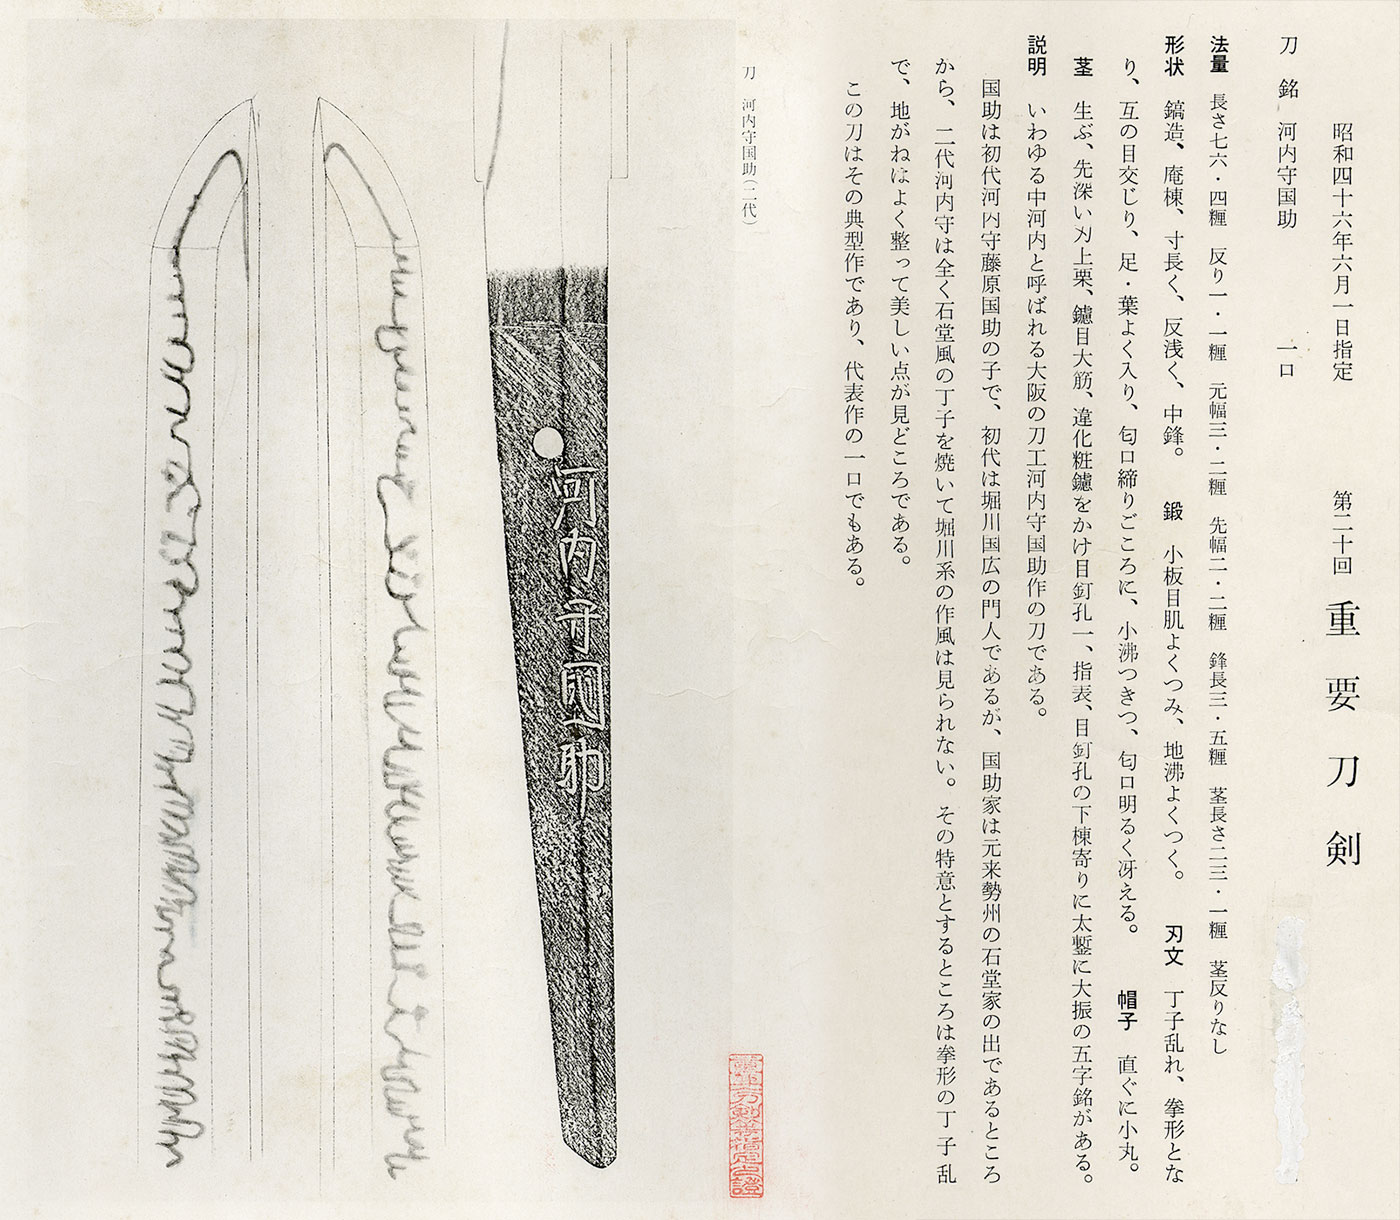 昭和四十六年六月一日指定　第二十回　重要刀剣
刀　銘　河内守国助　一口
法量　長さ七六・四糎　反り一・一糎　元幅三・二糎　先幅二・二糎　鋒長三・五糎　茎長さ二三・一糎　茎反りなし
形状　鎬造、庵棟、寸長く、反浅く、中鋒。　鍛　小板目肌よくつみ、地沸よくつく。　刃文　丁子乱れ、拳形とな
り、互の目交じり、足・葉よく入り、匂口締りごころに、小沸つきつ、匂口明るく冴える。　帽子　直ぐに小丸。
茎　生ぶ、先深い刃上栗、鑢目大筋、違化粧鑢をかけ目釘孔一、指表、目釘孔の下棟寄りに太鏨に大振の五字銘がある。
説明　いわゆる中河内と呼ばれる大阪の刀工河内守国助作の刀である。
国助は初代河内守藤原国助の子で、初代は堀川国広の門人であるが、国助家は元来勢州の石堂家の出であるところ
から、二代河内守は全く石堂風の丁子を焼いて堀川系の作風は見られない。その特意とするところは拳形の丁子乱
で、地がねはよく整って美しい点が見どころである。
この刀はその典型作であり、代表作の一口でもある。
刀　河内守国助（二代）
重要刀剣等指定之證
河内守國助